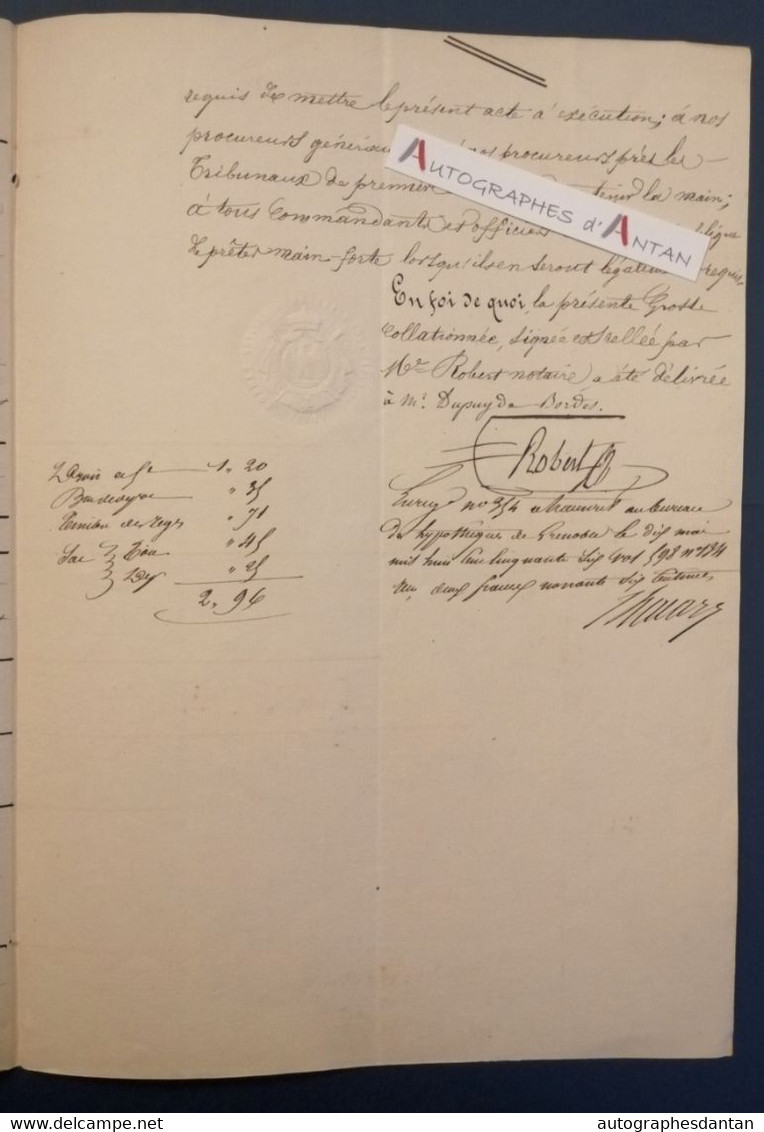 requis de mettre le présent acte à exécution; à nos
procureurs nos procureurs près les
Tribunaux de premier la main;
à tous Commandants et officiers
de prêter main-forte lorsqu'ils en seront requis.
En foi de quoi, la présente Grosse
Collationnée, signée et scellée par
Me Robert notaire, a été délivrée
à Mr. Dupuy de Bordes.
AUTOGRAPHES d'ANTAN
Robert
1, 20
" 35
" 71
" 45
" 25
2, 96
no 254 au bureau
des hypothèques de Grenoble le dix mai
mil huit cent cinquante six vol 598 no 124
deux francs nonante six centimes
delcampe.net
autographesdantan